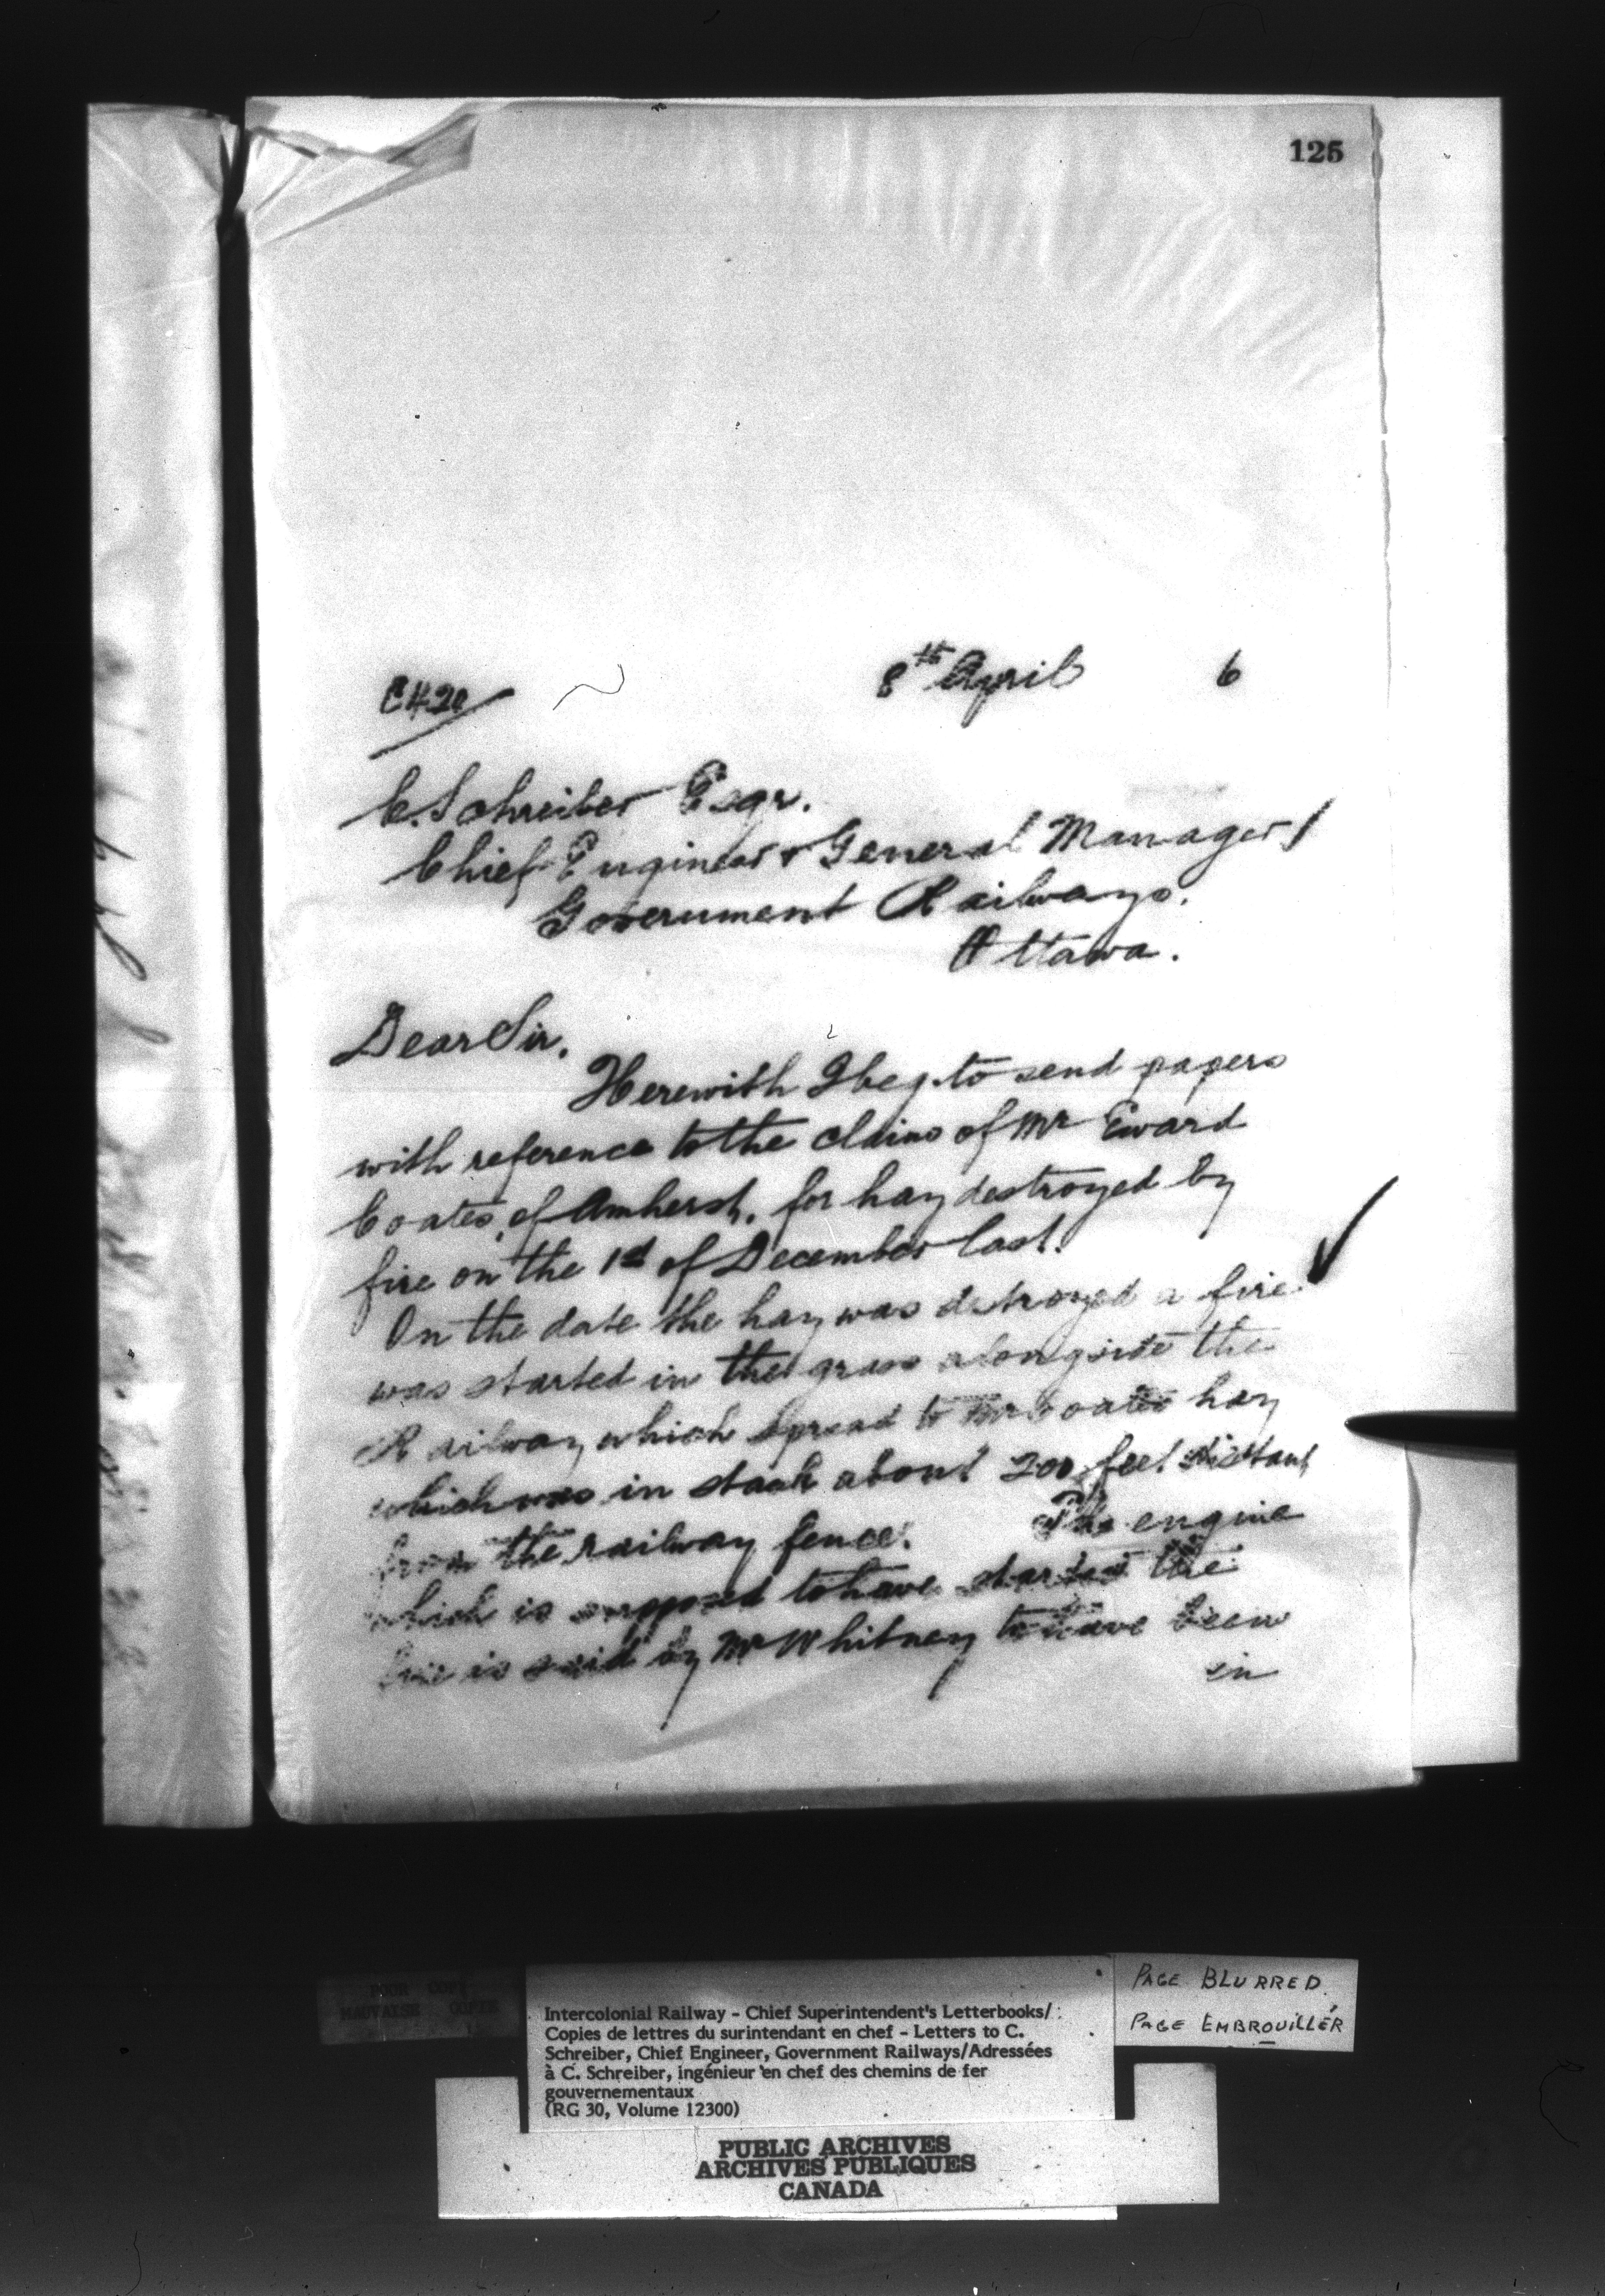 125
8th April 6
C. Schreiber Esqr.
Chief Engineer & General Manager
Government Railways.
Ottawa.
Dear Sir,
Herewith I beg to send papers
with reference to the claim of Mr Eward
Coates, of Amherst, for hay destroyed by
fire on the 1st of December last.
On the date the hay was destroyed a fire
was started in the grass alongside the
Railway which spread to Mr Coates hay
which was in stack about 200 feet distant
from the railway fence. The engine
which is supposed to have started the
fire is said by Mr Whitney to have been
in
POOR COPY
MAUVAISE COPIE
Intercolonial Railway - Chief Superintendent's Letterbooks/
Copies de lettres du surintendant en chef - Letters to C.
Schreiber, Chief Engineer, Government Railways/Adressées
à C. Schreiber, ingénieur en chef des chemins de fer
gouvernementaux
(RG 30, Volume 12300)
PAGE BLURRED.
PAGE EMBROUILLÉR
PUBLIC ARCHIVES
ARCHIVES PUBLIQUES
CANADA